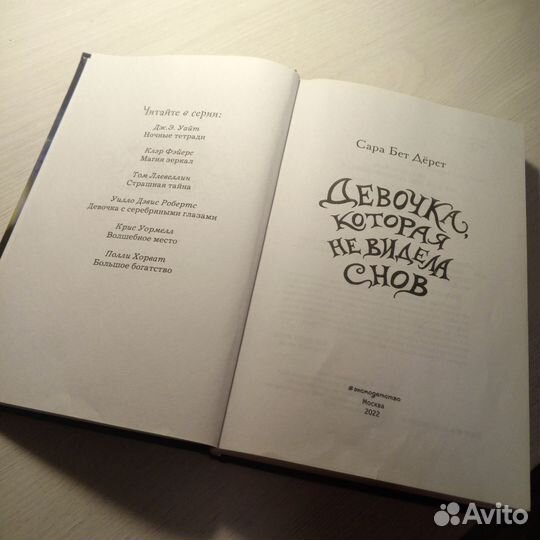 Читайте в серии:
Дж.Э. Уайт
Ночные тетради
Клэр Фэйерс
Магия зеркал
Том Ллевеллин
Страшная тайна
Уилло Дэвис Робертс
Девочка с серебряными глазами
Крис Уормелл
Волшебное место
Полли Хорват
Большое богатство
Сара Бет Дёрст
ДЕВОЧКА,
КОТОРАЯ
НЕ ВИДЕЛА
СНОВ
#эксмодетство
Москва
2022
Avito